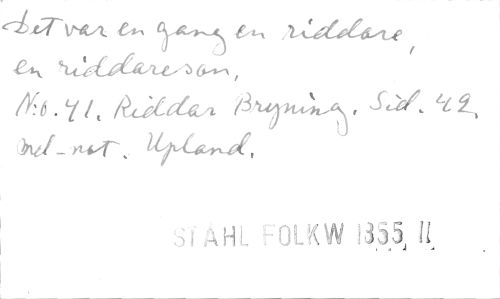 Det var en gang en riddare,
en riddareson,
N:o. 41. Riddar Bryning. Sid. 42.
mel-not. Upland.
STAHL FOLKW 1855, II